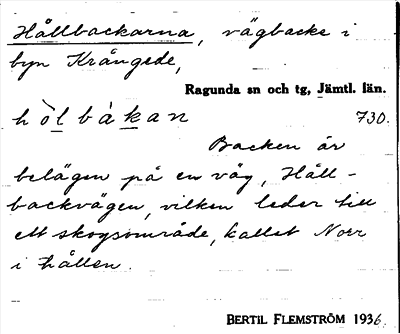 Hållbackarna, vägbacke i
byn Krångede,
Ragunda sn och tg, Jämtl. län.
hòlbàkan 730.
Backen är
belägen på en väg, Håll-
backvägen, vilken leder till
ett skogsområde, kallat Norr
i hållen.
BERTIL FLEMSTRÖM 1936.